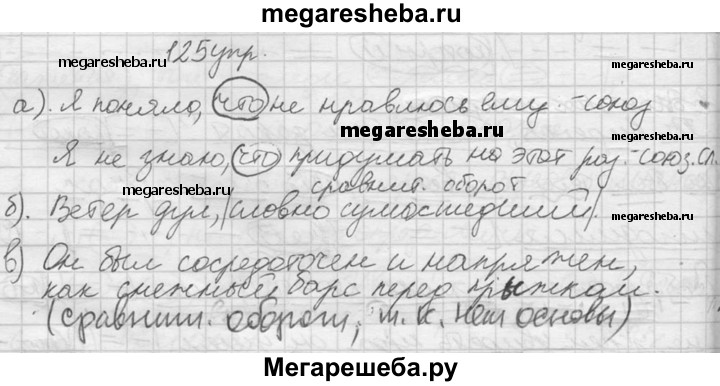 megaresheba.ru
125 упр.
megaresheba.ru megaresheba.ru
а). Я поняла, что не нравлюсь ему. -союз
megaresheba.ru
Я не знаю, что придумать на этот раз. -союз.сл.
megaresheba.ru
сравнит. оборот
б). Ветер дул, |словно сумасшедший|.
megaresheba.ru
в) Он был сосредоточен и напряжен,
megaresheba.ru megaresheba.ru
как снежный барс перед прыжком.
(сравнит. оборот, т.к. нет основы)
Мегарешеба.ру